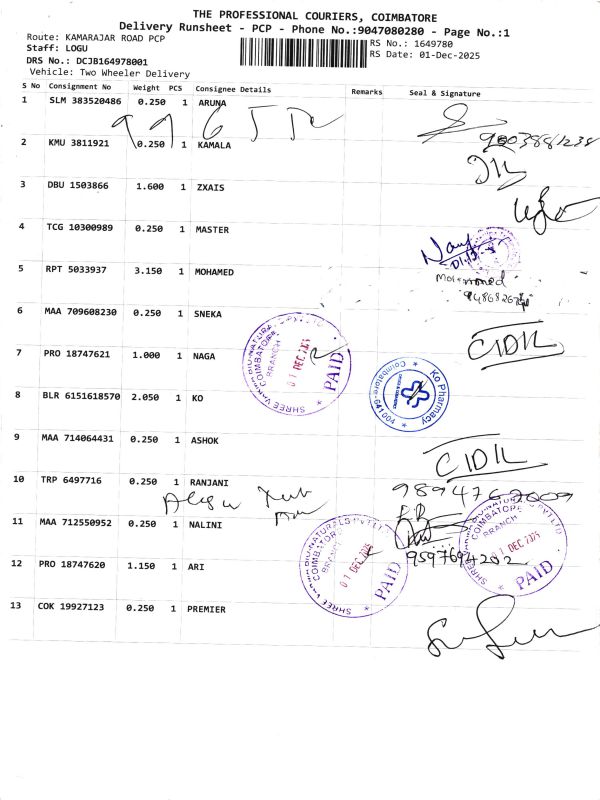 THE PROFESSIONAL COURIERS, COIMBATORE
Delivery Runsheet - PCP - Phone No.:9047080280 - Page No.:1
Route: KAMARAJAR ROAD PCP
RS No.: 1649780
Staff: LOGU
RS Date: 01-Dec-2025
DRS No.: DCJB164978001
Vehicle: Two Wheeler Delivery
S No Consignment No Weight PCS Consignee Details Remarks Seal & Signature
1 SLM 383520486 0.250 1 ARUNA
2 KMU 3811921 0.250 1 KAMALA
3 DBU 1503866 1.600 1 ZXAIS
4 TCG 10300989 0.250 1 MASTER
5 RPT 5033937 3.150 1 MOHAMED
6 MAA 709608230 0.250 1 SNEKA
COIMBATORE BRANCH 01 DEC 2025 PAID
7 PRO 18747621 1.000 1 NAGA
8 BLR 6151618570 2.050 1 KO
Ko Pharmacy
Coimbatore-641004
9 MAA 714064431 0.250 1 ASHOK
10 TRP 6497716 0.250 1 RANJANI
11 MAA 712550952 0.250 1 NALINI
9597694202
12 PRO 18747620 1.150 1 ARI
COIMBATORE BRANCH 01 DEC 2025 PAID
COIMBATORE BRANCH 01 DEC 2025 PAID
13 COK 19927123 0.250 1 PREMIER